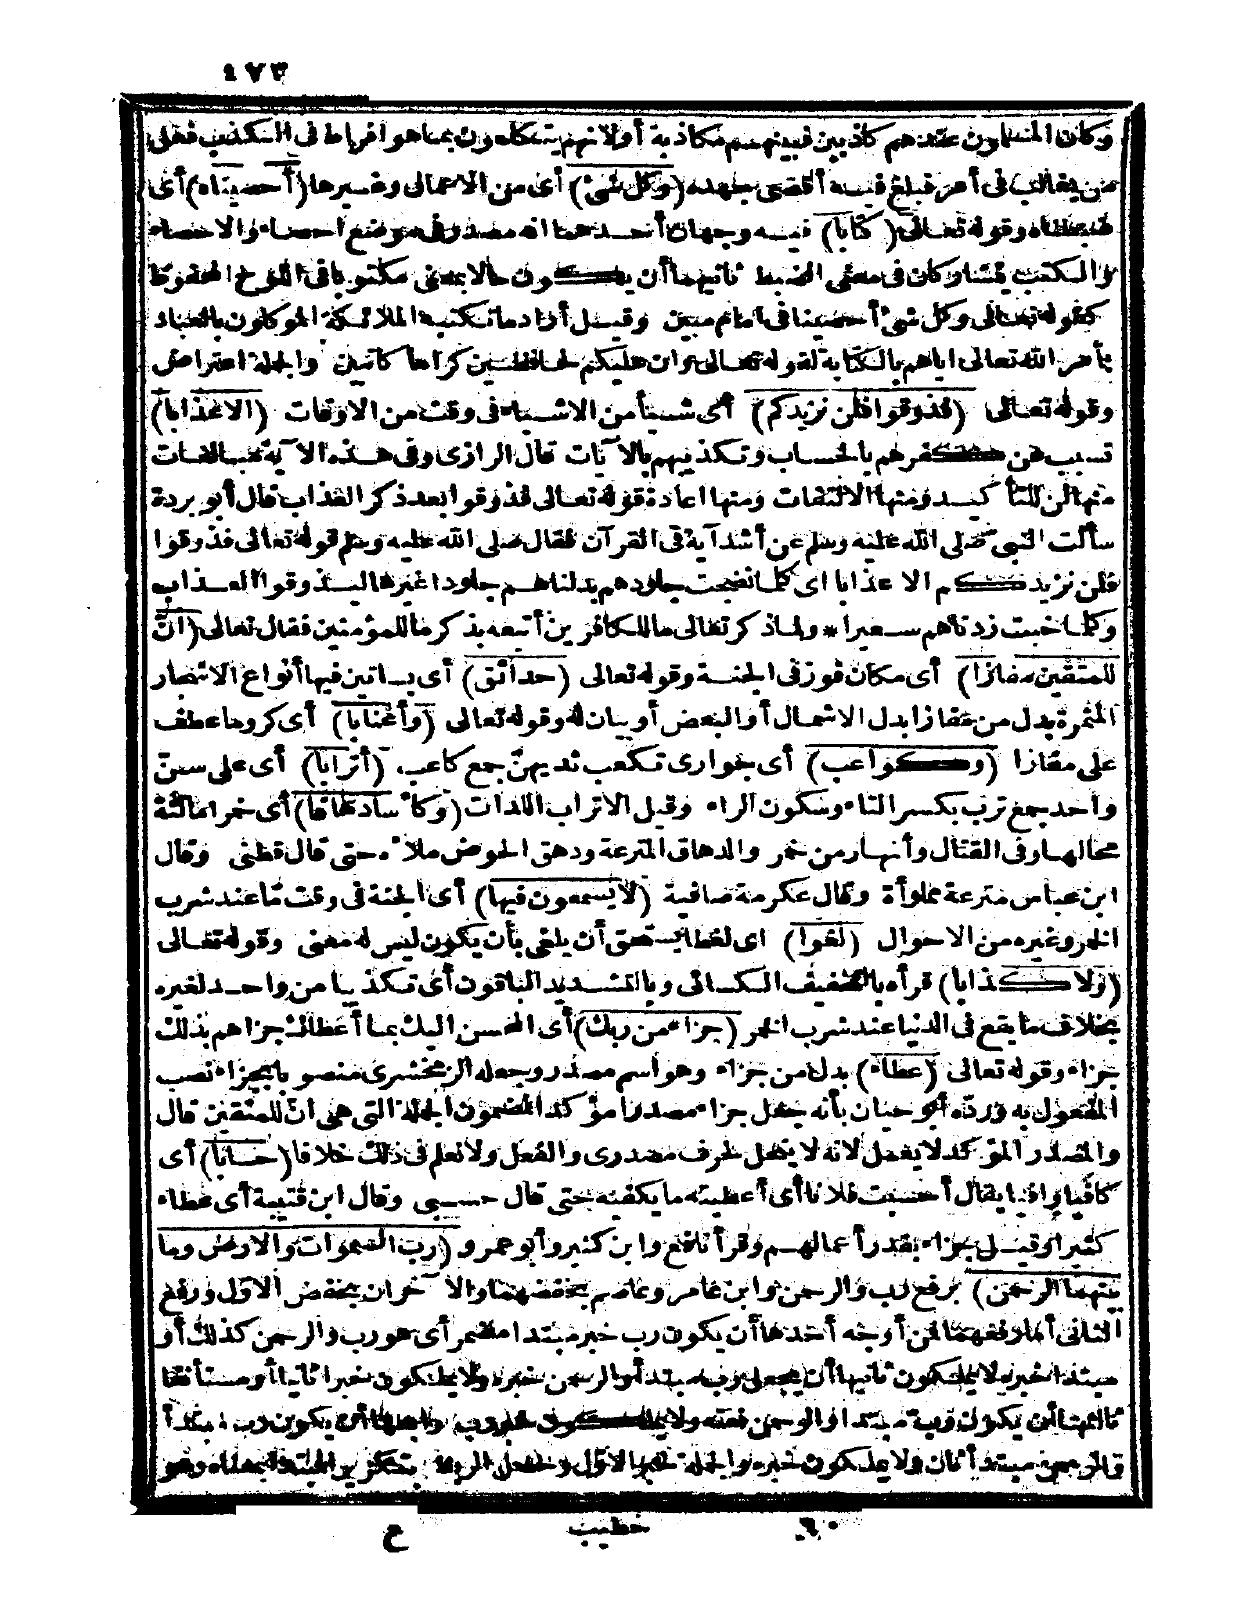 ٤٧٣
وكان المسلمون عندهم كاذبين فبينهم مكاذبة أولانهم يتكلمون بما هو افراط فى الكذب فعل
من يغالب فى أمر فبلغ فيه أقصى جهده (وكل شئ) أى من الاعمال وغيرها (أحصيناه) أى
ضبطناه وقوله تعالى (كتابا) فيه وجهان أحدهما انه مصدر فى موضع احصاء والاحصاء
والكتب يتشاركان فى معنى الضبط ثانيهما أن يكون حالا بمعنى مكتوبا فى اللوح المحفوظ
كقوله تعالى وكل شئ أحصيناه فى امام مبين وقيل أراد ما تكتبه الملائكة الموكلون بالعباد
بأمر الله تعالى اياهم بالكتابة لقوله تعالى وان عليكم لحافظين كراما كاتبين والجملة اعتراض
وقوله تعالى (فذوقوا فلن نزيدكم) أى شيأ من الاشياء فى وقت من الاوقات (الاعذابا)
تسبب عن كفرهم بالحساب وتكذيبهم بالآيات قال الرازى وفى هذه الآية مبالغات
منها لن للتأكيد ومنها الالتفات ومنها اعادة قوله تعالى فذوقوا بعد ذكر العذاب قال أبو بردة
سألت النبى صلى الله عليه وسلم عن أشد آية فى القرآن فقال صلى الله عليه وسلم قوله تعالى فذوقوا
فلن نزيدكم الا عذابا اى كلما نضجت جلودهم بدلناهم جلودا غيرها ليذوقوا العذاب
وكلما خبت زدناهم سعيرا * ولما ذكر تعالى ما للكافرين أتبعه بذكر ما للمؤمنين فقال تعالى (انّ
للمتقين مفازا) أى مكان فوز فى الجنة وقوله تعالى (حدائق) أى بساتين فيها أنواع الاشجار
المثمرة بدل من مفازا بدل الاشتمال أو البعض أو بيان له وقوله تعالى (وأعنابا) أى كروما عطف
على مفازا (وكواعب) أى جوارى تكعب ثديهنّ جمع كاعب (أترابا) أى على سنّ
واحد جمع ترب بكسر التاء وسكون الراء وقيل الاتراب اللدات (وكأسا دهاقا) أى خمرا مالئة
محالها وفى القتال وأنهار من خمر والدهاق المترعة ودهق الحوض ملأه حتى قال قطنى وقال
ابن عباس مترعة مملوأة وقال عكرمة صافية (لا يسمعون فيها) أى الجنة فى وقت مّا عند شرب
الخمر وغيره من الاحوال (لغوا) اى لغطا يستحق أن يلغى بأن يكون ليس له معنى وقوله تعالى
(ولا كذابا) قرأه بالتخفيف الكسائى وبالتشديد الباقون أى تكذيبا من واحد لغيره
بخلاف ما يقع فى الدنيا عند شرب الخمر (جزاء من ربك) أى المحسن اليك بما أعطاك جزاهم بذلك
جزاء وقوله تعالى (عطاء) بدل من جزاء وهو اسم مصدر وجعله الزمخشرى منصوبا بجزاء نصب
المفعول به وردّه أبو حيان بأنه جعل جزاء مصدرا مؤكدا لمضمون الجملة التى هى انّ للمتقين قال
والمصدر المؤكد لا يعمل لانه لا ينحل لحرف مصدرى والفعل ولا نعلم فى ذلك خلافا (حسابا) أى
كافيا وافيا يقال أحسبت فلانا أى أعطيته ما يكفيه حتى قال حسبى وقال ابن قتيبة أى عطاء
كثيرا وقيل جزاء بقدر أعمالهم وقرأ نافع وابن كثير وأبو عمرو (رب السموات والارض وما
بينهما الرحمن) برفع رب والرحمن وابن عامر وعاصم بخفضهما والآخران بخفض الاوّل ورفع
الثانى أما رفعهما فمن أوجه أحدها أن يكون رب خبر مبتدا مضمر أى هو رب والرحمن كذلك أو
مبتدأ خبره لا يملكون ثانيها أن يجعل رب مبتدأ والرحمن خبره ولا يملكون خبرا ثانيا أو مستأنفا
ثالثها أن يكون رب مبتدأ والرحمن نعته ولا يملكون خبر رب رابعها أن يكون رب مبتدأ
والرحمن مبتدأ ثان ولا يملكون خبره والجملة خبر الاوّل وحصل الربط بتكرير المبتدا بمعناه وهو
٦٠ خطيب ع